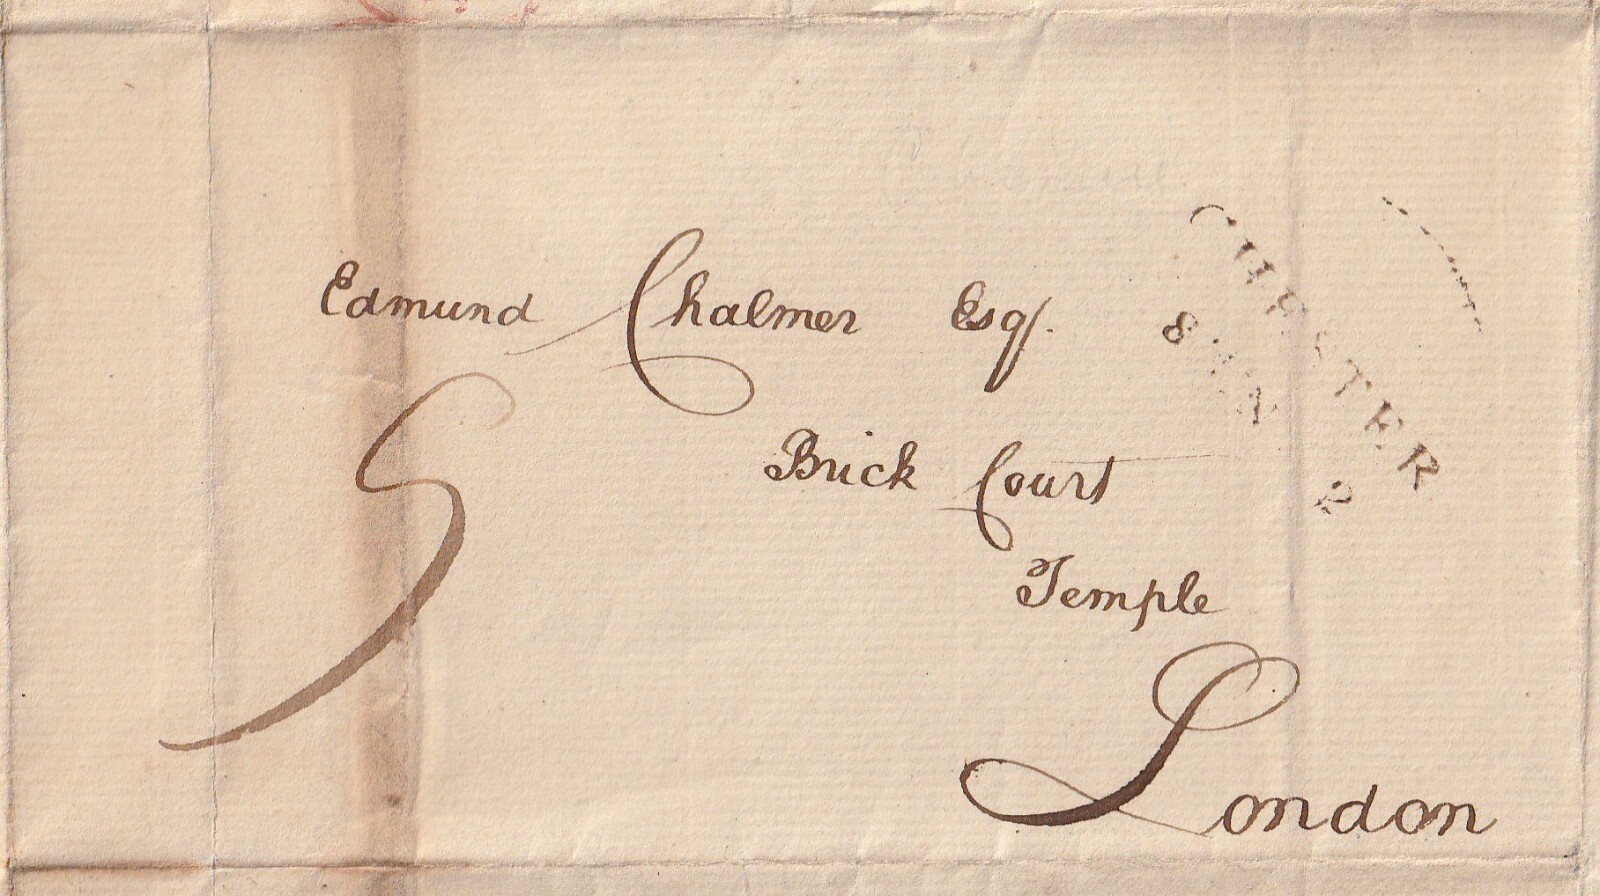 Edmund Chalmer Esqr.
Brick Court
Temple
London
5
CHESTER